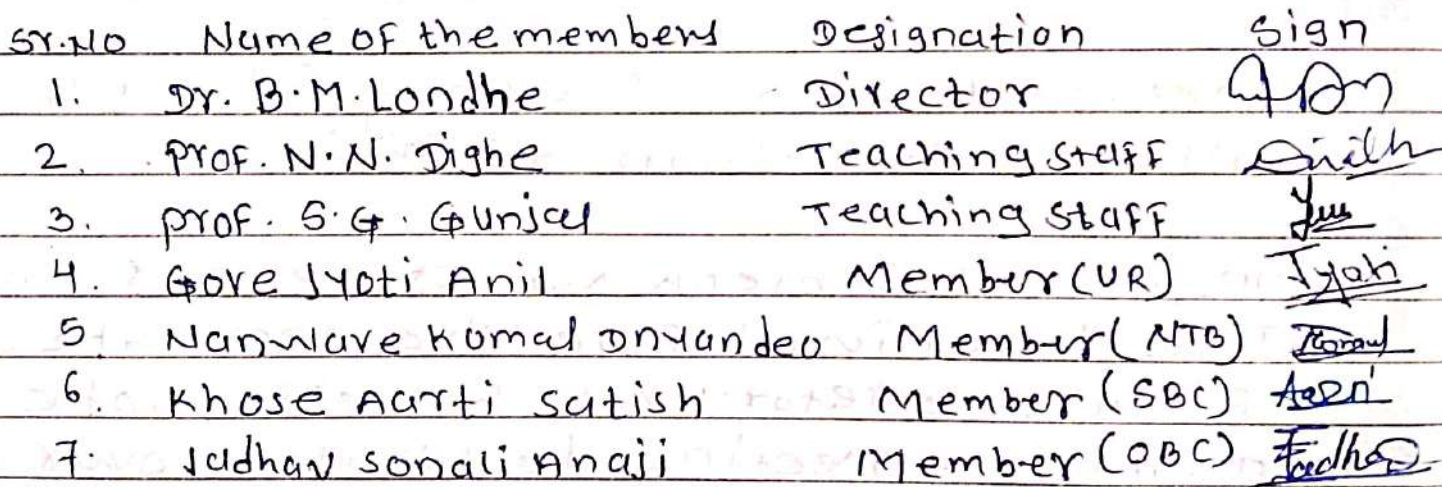 Sr.No Name of the members Designation Sign
1. Dr. B.M. Londhe Director
2. Prof. N.N. Dighe Teaching Staff
3. Prof. S.G. Gunjal Teaching Staff
4. Gore Jyoti Anil Member (UR) Jyoti
5. Nanware Komal Dnyandeo Member (NTB) Komal
6. Khose Aarti Satish Member (SBC)
7. Jadhav Sonali Anaji Member (OBC) Jadhav